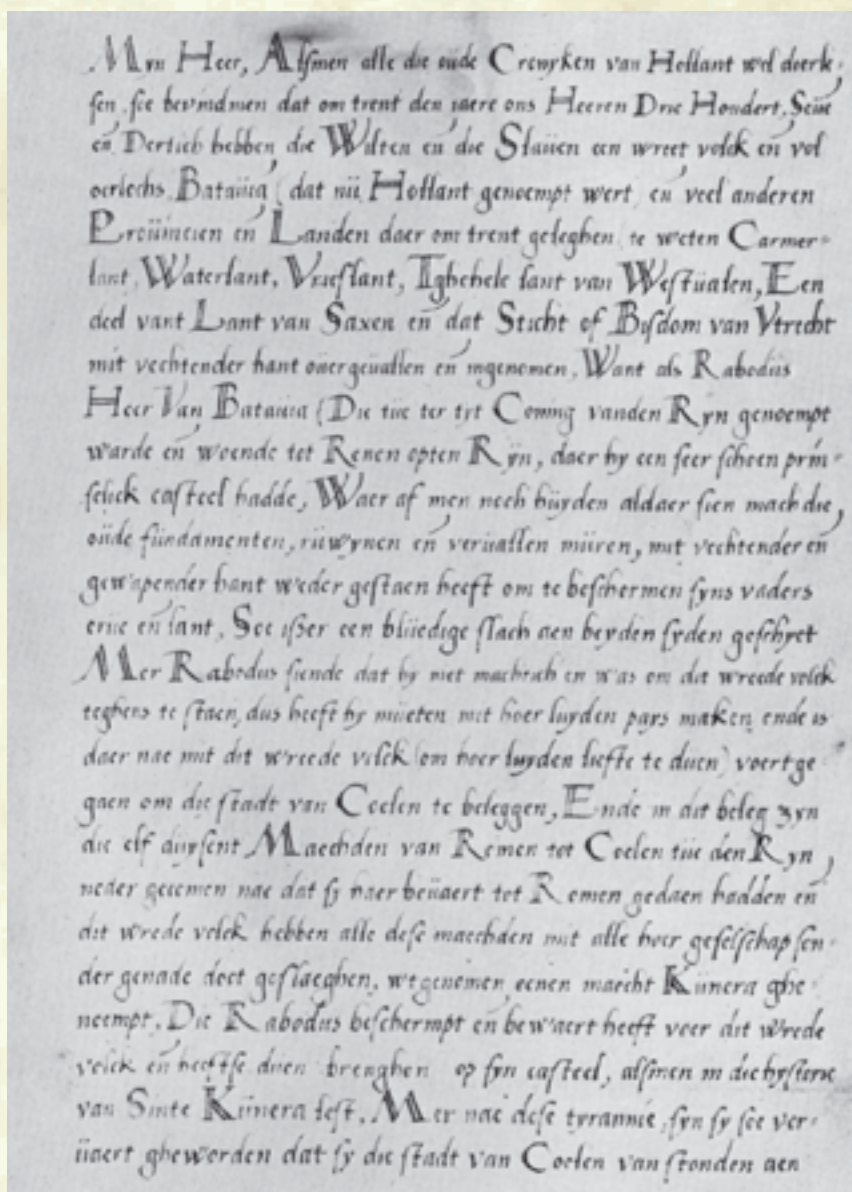 Myn Heer, Alsmen alle die oüde Cronyken van Hollant wel doerle,
sen, soe bevindmen dat om trent den iaere ons Heeren Drie Hondert, Seüe
en̄ Dertich hebben die Wilten en̄ die Slaüen een wreet volck en̄ vol
oerlochs, Bataüia (dat nü Hollant genoempt wert, en̄ veel anderen
Proüincien en̄ Landen daer om trent geleghen, te weten Carmer-
lant, Waterlant, Vrieslant, Tghehele lant van Westüalen, Een
deel vant Lant van Saxen en̄ dat Sticht of Bisdom van Vtrecht
mit vechtender hant oüergeüallen en̄ ingenomen, Want als Rabodüs
Heer Van Bataüia (Die tüe ter tyt Coning vanden Ryn genoempt
warde en̄ woende tot Renen opten Ryn, daer hy een seer schoen prin-
selick casteel hadde, Waer af men noch hüyden aldaer sien mach die,
oüde fündamenten, rüwynen en̄ verüallen müren, mit vechtender en̄
gewapender hant weder gestaen heeft om te beschermen syns vaders
erüe en̄ lant, Soe isser een blüedige slach aen beyden syden geschyet
Mer Rabodus siende dat hy niet machtich en was om dit wreede volck
teghens te staen, dus heeft hy müeten mit hoer luyden pays maken, ende is
daer nae mit dit wreede volck (om hoer luyden liefte te düen) voert ge
gaen om die stadt van Coelen te beleggen, Ende in dit beleg zyn
die elf duysent Maechden van Romen tot Coelen tüe den Ryn,
neder gecomen nae dat sy haer beüaert tot Romen gedaen hadden en̄
dit wrede volck hebben alle dese maechden mit alle hoer geselschap son-
der genade doot geslaeghen, wtgenomen eenen maecht Künera ghe-
noempt, Die Rabodus beschermpt en̄ bewaert heeft voer dit wrede
volck en̄ heeftse düen brenghen op syn casteel, alsmen in die hystorie
van Sinte Künera lest, Mer nae dese tyrannie, syn sy soe ver-
üaert gheworden dat sy die stadt van Coelen van stonden aen